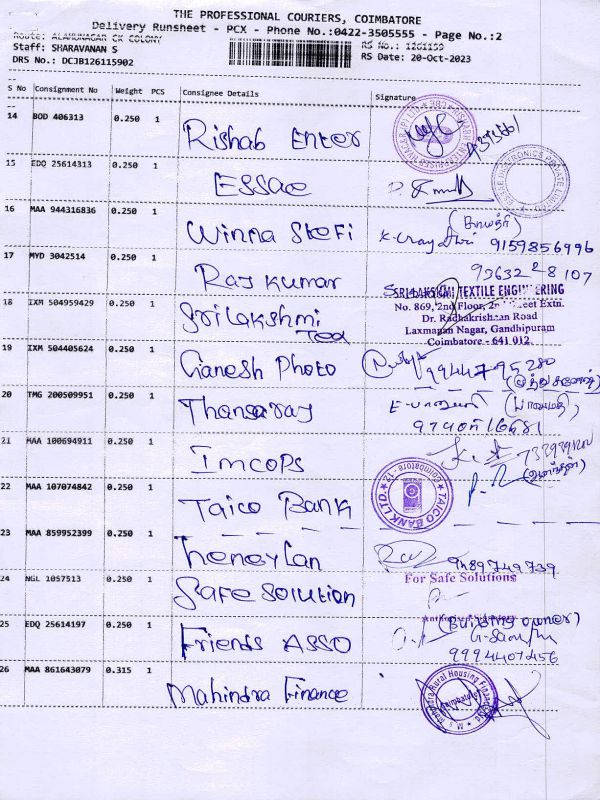 THE PROFESSIONAL COURIERS, COIMBATORE
Delivery Runsheet - PCX - Phone No.:0422-3505555 - Page No.:2
Route: ALAMUNAGAR CK COLONY
RS No.: 1261159
Staff: SHARAVANAN S
RS Date: 20-Oct-2023
DRS No.: DCJB126115902
S No Consignment No Weight PCS Consignee Details Signature
14 BOD 406313 0.250 1 Rishab Enter
15 EDQ 25614313 0.250 1 ESSae
16 MAA 944316836 0.250 1 Winna Stefi 9159856996
17 MYD 3042514 0.250 1 Raj kumar 9363228107
SRI LAKSHMI TEXTILE ENGINEERING
No. 869, 2nd Floor, 2nd Street Extn.
Dr. Radhakrishnan Road
Laxmanan Nagar, Gandhipuram
Coimbatore - 641 012
18 IXM 504959429 0.250 1 Srilakshmi Tex
19 IXM 504405624 0.250 1 Ganesh Photo 9944795280
20 TMG 200509951 0.250 1 Thangaraj
21 MAA 100694911 0.250 1 Imcops
22 MAA 107074842 0.250 1 Taico Bank
★ TAICO BANK LTD. ★ Coimbatore - 12
23 MAA 859952399 0.250 1 9489749739
For Safe Solutions
24 NGL 1057513 0.250 1 Safe Solution
25 EDQ 25614197 0.250 1 Friends ASSO (Building owner)
9994407456
26 MAA 861643079 0.315 1 Mahindra Finance